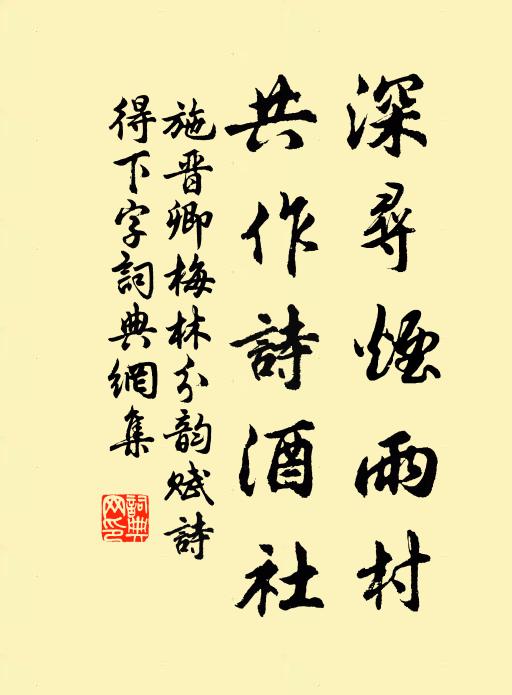 深尋煙雨村
共作詩酒社
施晋卿梅林分韵賦詩
得下字詞典網集
詞典
网印